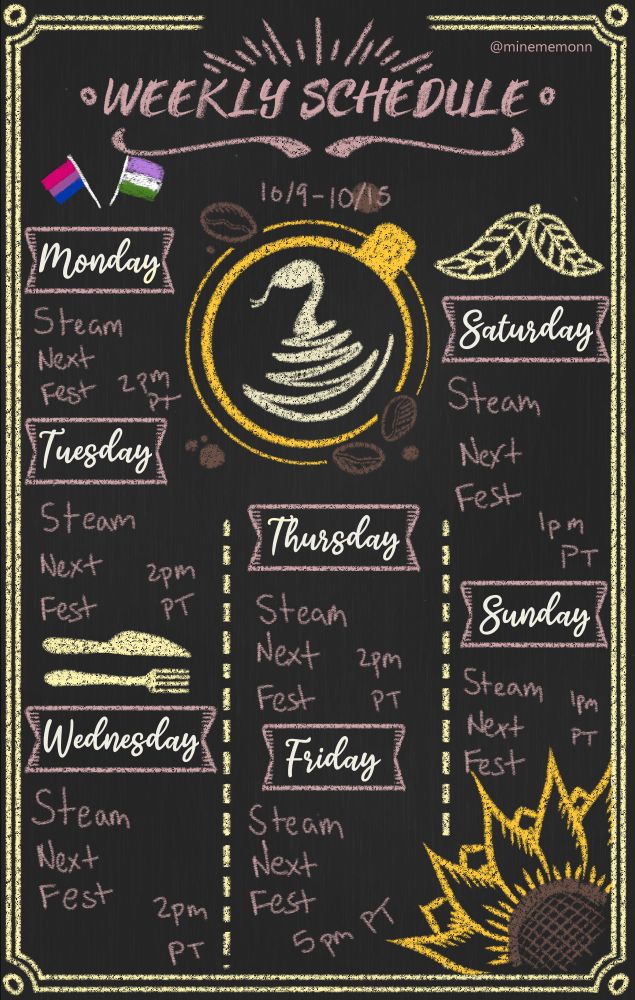 @minememonn
WEEKLY SCHEDULE
10/9-10/15
Monday
Steam
Next
Fest 2pm
PT
Tuesday
Steam
Next 2pm
Fest PT
Wednesday
Steam
Next
Fest
2pm
PT
Thursday
Steam
Next 2pm
Fest PT
Friday
Steam
Next
Fest
5pm PT
Saturday
Steam
Next
Fest
1pm
PT
Sunday
Steam 1pm
Next PT
Fest